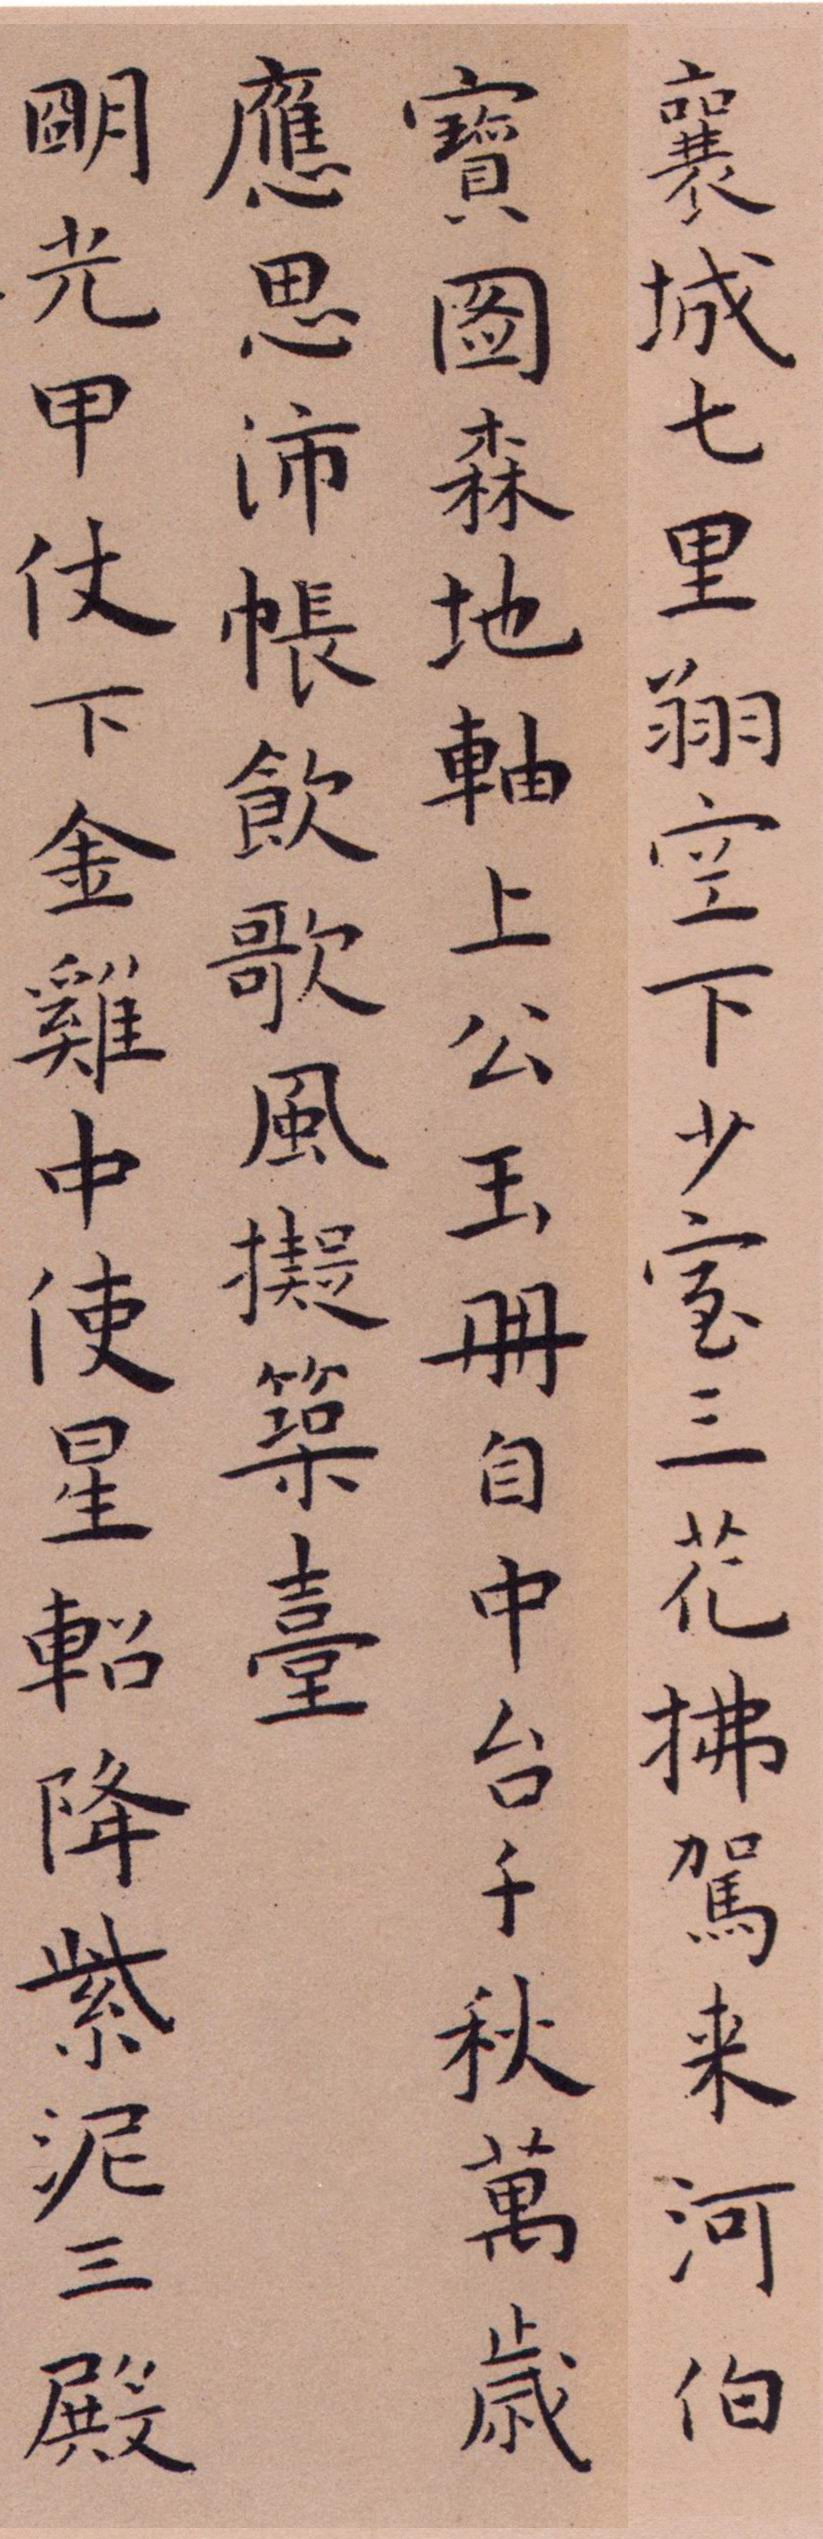 襄城七里翔空下少室三花拂駕来河伯
寶圖森地軸上公玉冊自中台千秋萬歲
應思沛帳飲歌風擬築臺
明光甲仗下金雞中使星軺降紫泥三殿